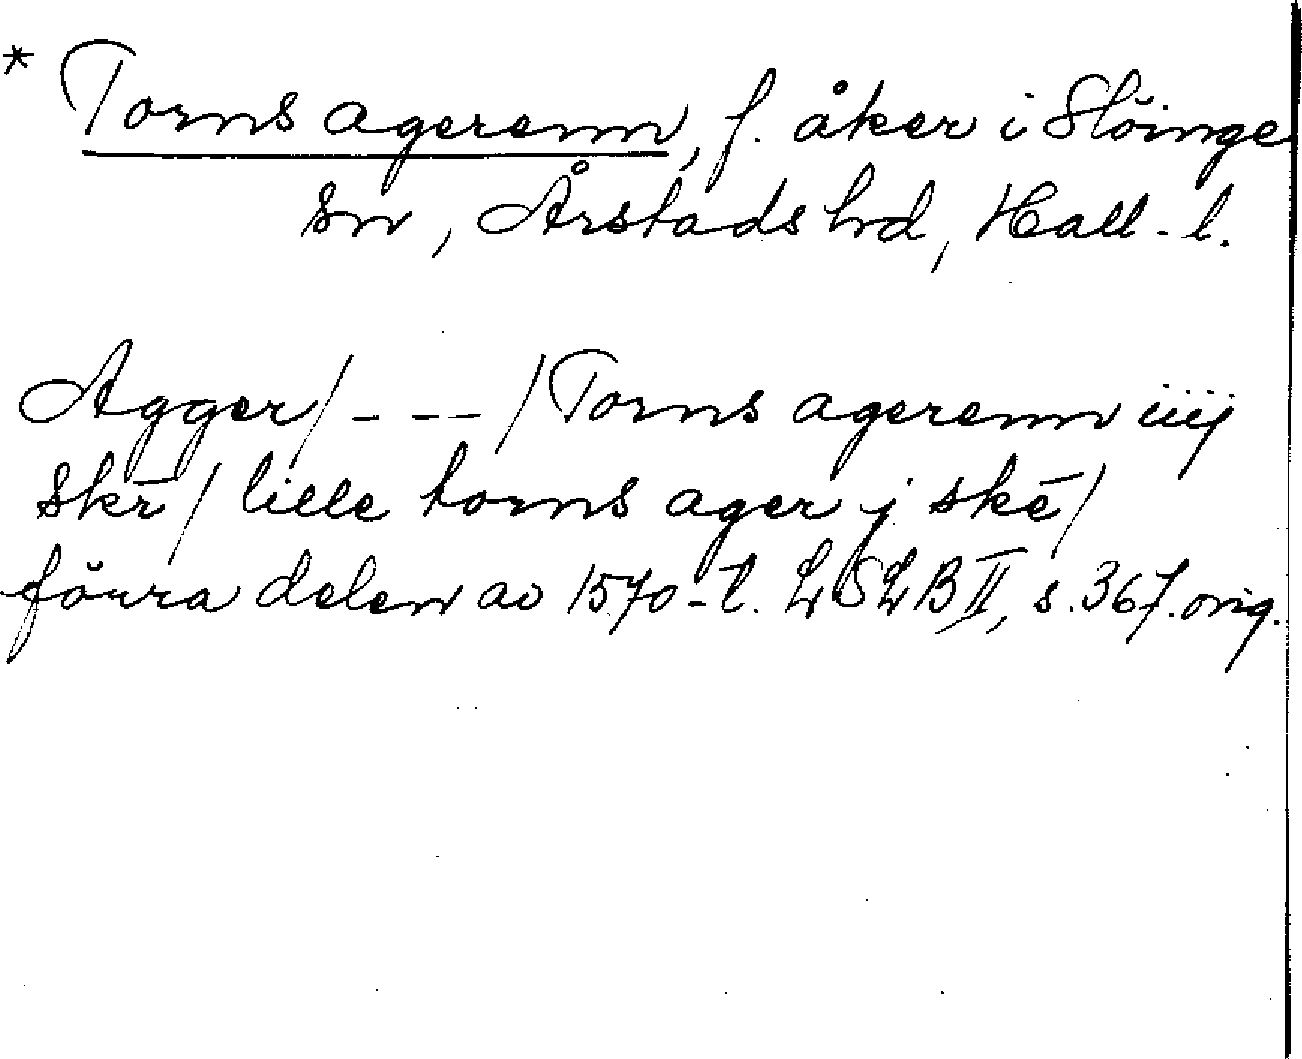 * Torns agerenn, f. åker i Slöinge
sn, Årstads hd, Hall-l.
Agger/- - -/Torns agerenn iiij
skē/ lille torns ager j skē/
förra delen av 1570-t. LSLB II, s. 367. orig.